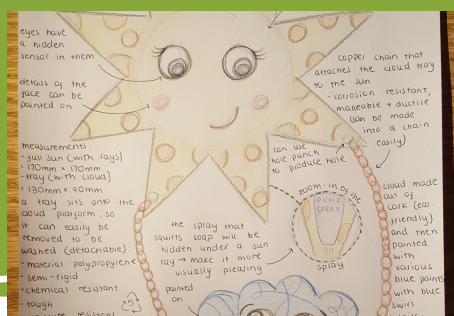 eyes have
a hidden
sensor in them
details of the
face can be
painted on
measurements:
- full sun (with rays)
= 170mm x 170mm
- tray (with cloud)
= 130mm x 90mm
a tray sits onto the
cloud platform, so
it can easily be
removed to be
washed (detachable)
- material polypropylene
- semi-rigid
- chemical resistant
- tough
resistant
copper chain that
attaches the cloud tray
to the sun
- corrosion resistant,
maleable + ductile
(can be made
into a chain
easily)
can use
hole punch
to produce hole
zoom-in of the
PUMP
SPRAY
spray
the spray that
squirts soap will be
hidden under a sun
ray → make it more
visually pleasing
painted
on
cloud made
out of
cork (eco-
friendly)
and then
painted
with
various
blue paints
with blue
swirl
5